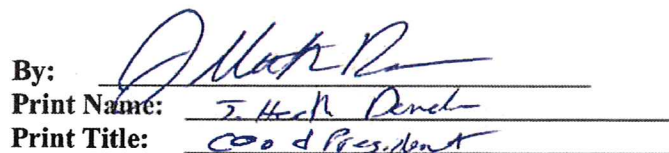 By:
Print Name: J. Heath
Print Title: COO & President